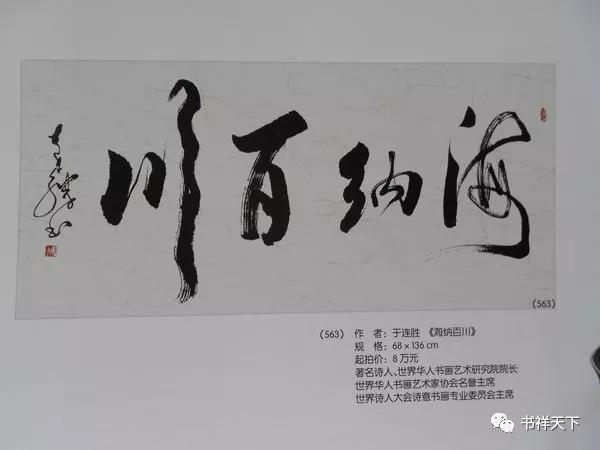 海纳百川
(563)
(563) 作 者：于连胜 《海纳百川》
规 格：68×136 cm
起拍价：8万元
著名诗人、世界华人书画艺术研究院院长
世界华人书画艺术家协会名誉主席
世界诗人大会诗意书画专业委员会主席
书祥天下